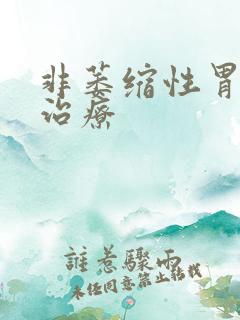 非萎缩性胃
治疗
誰惹驟雨
未任同意禁止转载